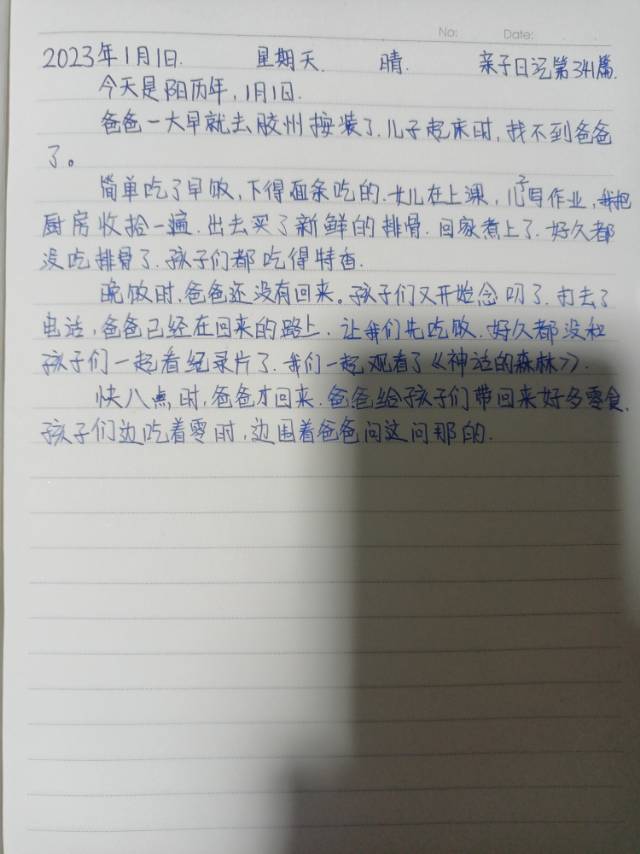 No: Date:
2023年1月1日. 星期天. 晴. 亲子日记第341篇.
今天是阳历年,1月1日.
爸爸一大早就去胶州按装了.儿子起床时,找不到爸爸
了。
简单吃了早饭,下得面条吃的.女儿在上课,儿子写作业,我把
厨房收拾一遍.出去买了新鲜的排骨.回家煮上了.好久都
没吃排骨了.孩子们都吃得特香.
晚饭时,爸爸还没有回来。孩子们又开始念叨了.打去了
电话,爸爸已经在回来的路上.让我们先吃饭.好久都没和
孩子们一起看纪录片了.我们一起观看了《神话的森林》.
快八点时,爸爸才回来.爸爸给孩子们带回来好多零食.
孩子们边吃着零时,边围着爸爸问这问那的.